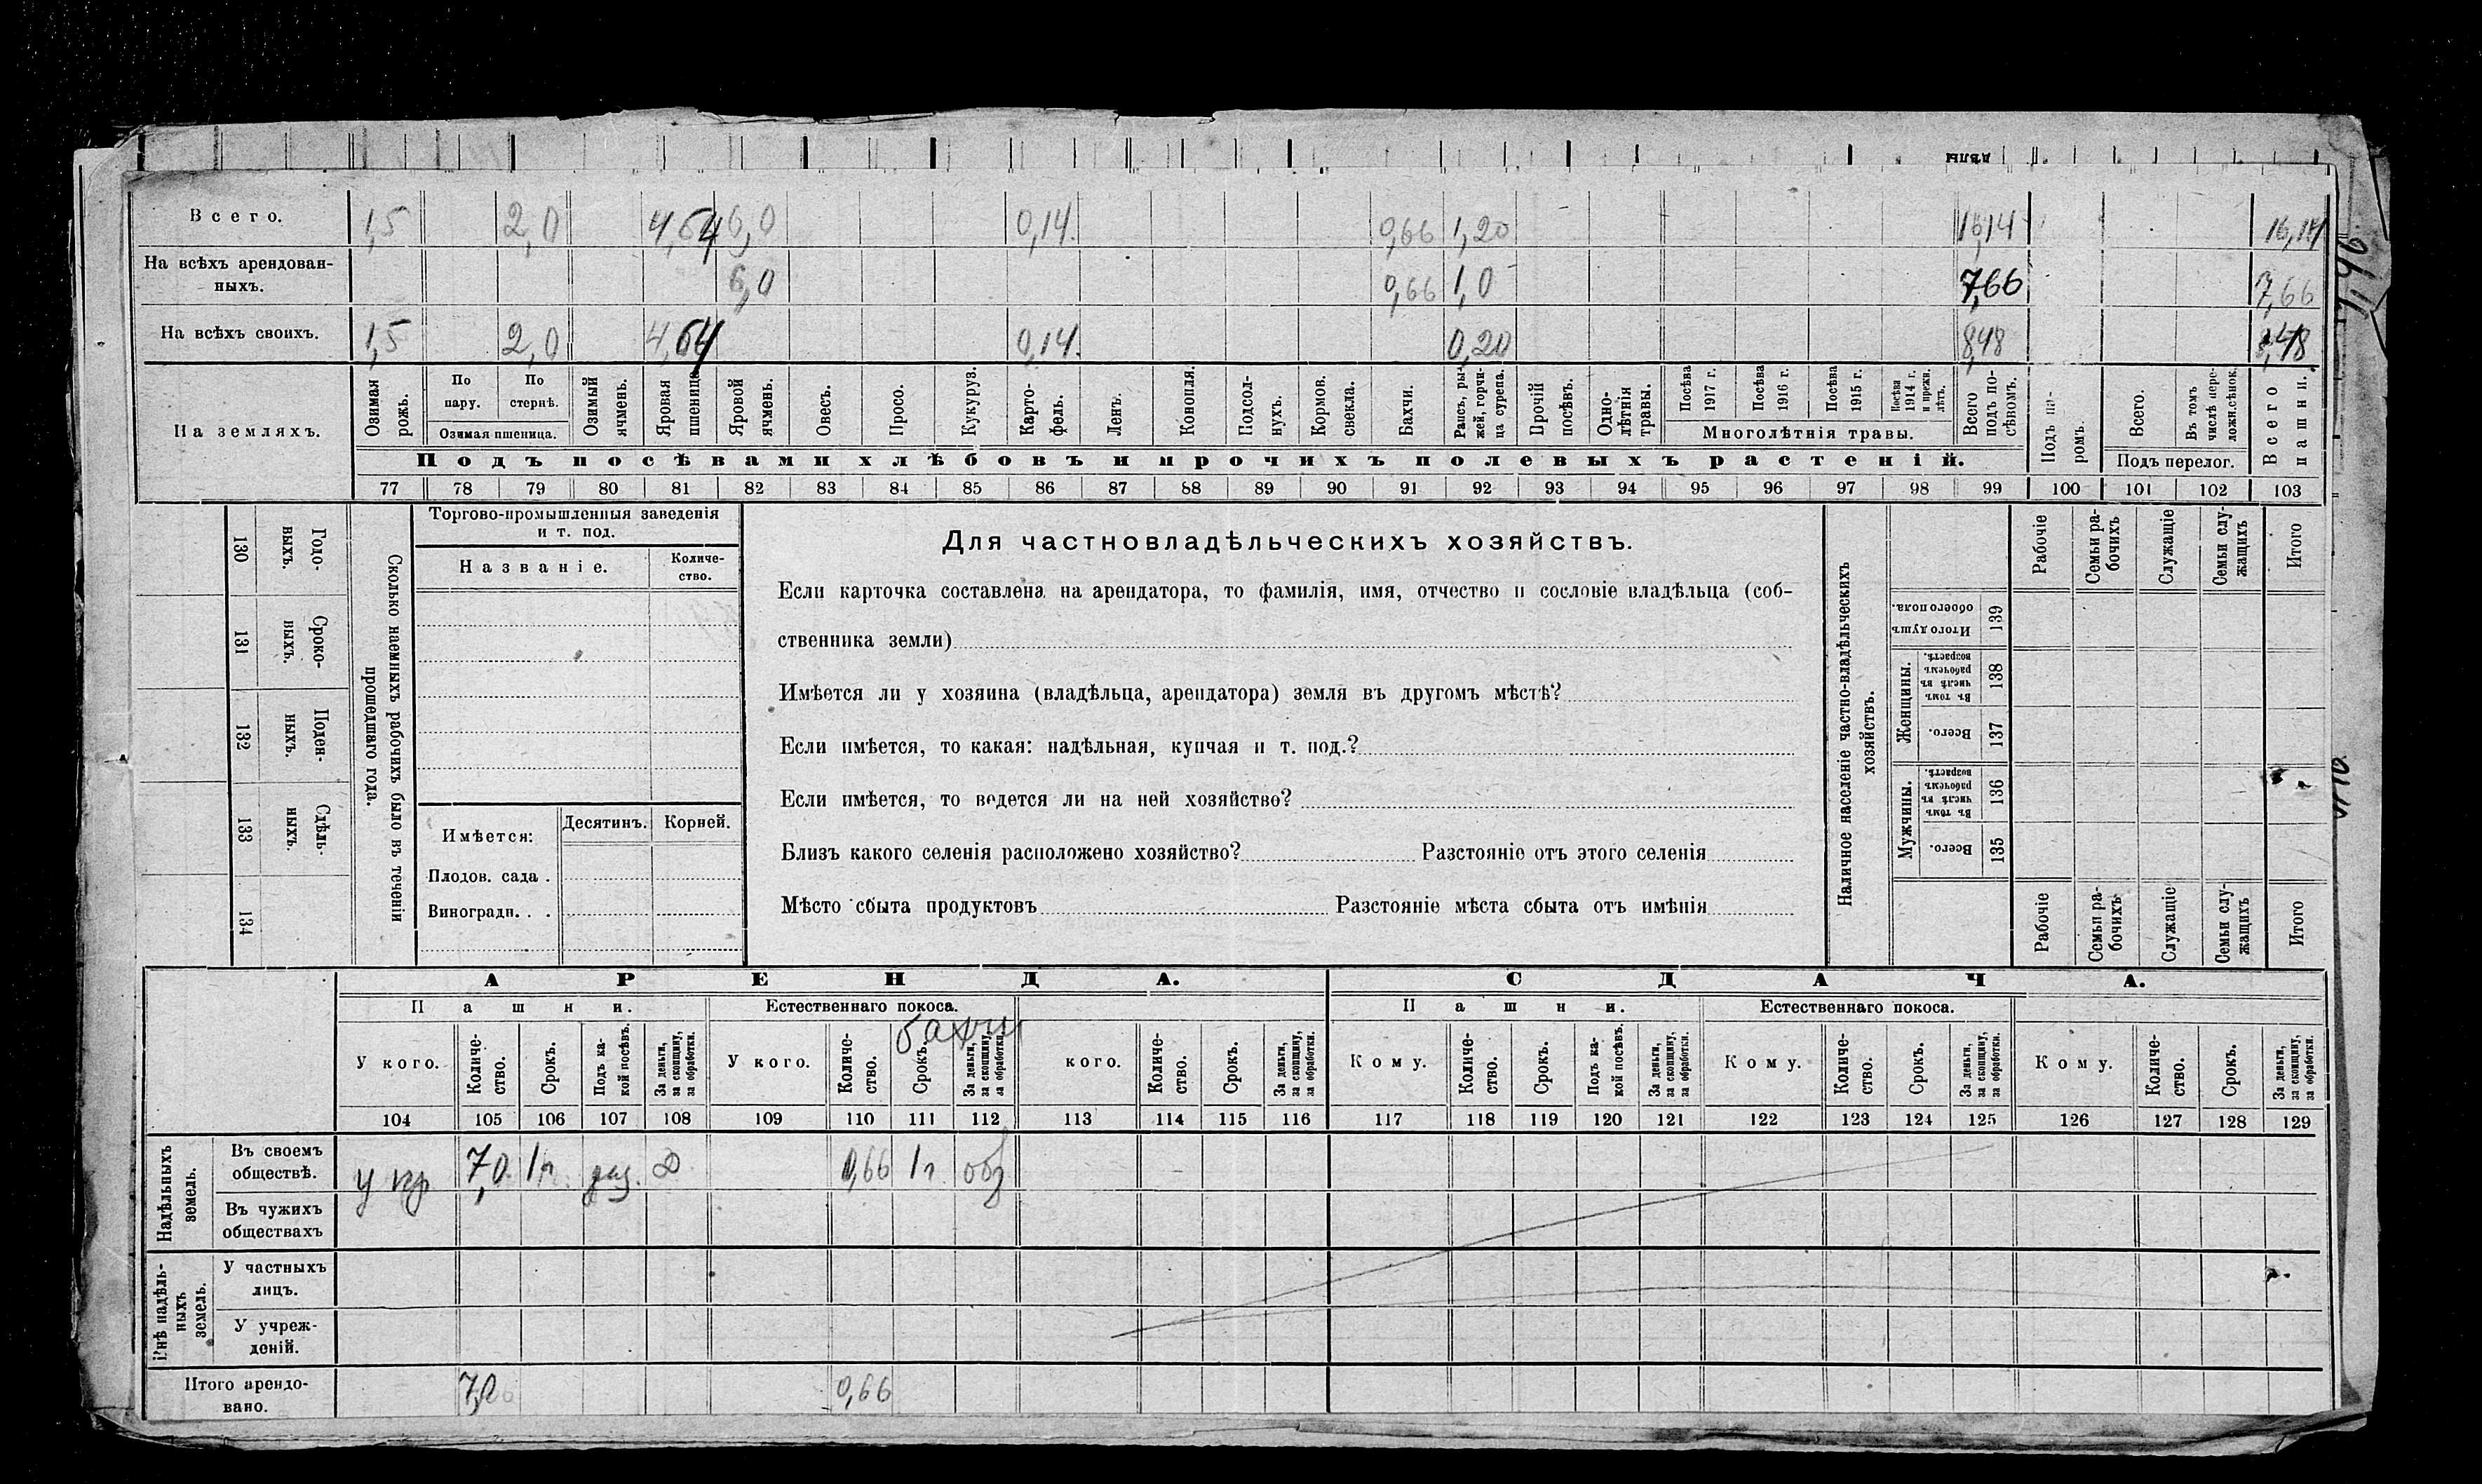 дѣлы
Всего. 1,5 2,0 4,64 6,0 0,14. 0,66 1,20 16,14 16,14
На всѣхъ арендован-
ныхъ. 6,0 0,66 1,0 7,66 7,66
На всѣхъ своихъ. 1,5 2,0 4,64 0,14. 0,20 8,48 8,48
На земляхъ.
Озимая рожь.
По пару.
По стернѣ.
Озимая пшеница.
Озимый ячмень.
Яровая пшеница
Яровой ячмень.
Овесъ.
Просо.
Кукуруз.
Карто-
фель.
Ленъ.
Конопля.
Подсол-
нухъ.
Кормов.
свекла.
Бахчи.
Рапсъ, ры-
жей, горчи-
ца сурепа.
Прочій
посѣвъ.
Одно-
лѣтнія
травы.
Посѣва
1917 г.
Посѣва
1916 г.
Посѣва
1915 г.
Посѣва
1914 г.
и прежн.
лѣтъ.
Многолѣтнія травы.
Всего
подъ по-
сѣвомъ.
Подъ па-
ромъ.
Всего.
Въ томъ
числѣ пере-
ложн.сѣнок.
Подъ перелог.
Всего
пашни.
Подъ посѣвами хлѣбовъ и прочихъ полевыхъ растеній.
77 78 79 80 81 82 83 84 85 86 87 88 89 90 91 92 93 94 95 96 97 98 99 100 101 102 103
Годо-
ныхъ.
130
Сроко-
ныхъ.
131
Поден-
ныхъ.
132
Сдѣль-
ныхъ.
133
134
Сколько наемныхъ рабочихъ было въ теченіи
прошедшаго года.
Торгово-промышленныя заведенія
и т. под.
Названіе.
Количе-
ство.
Имѣется:
Десятинъ.
Корней.
Плодов. сада .
Виноградн. . .
Для частновладѣльческихъ хозяйствъ.
Если карточка составлена на арендатора, то фамилія, имя, отчество и сословіе владѣльца (соб-
ственника земли)
Имѣется ли у хозяина (владѣльца, арендатора) земля въ другомъ мѣстѣ?
Если имѣется, то какая: надѣльная, купчая и т. под.?
Если имѣется, то ведется ли на ней хозяйство?
Близъ какого селенія расположено хозяйство? Разстояніе отъ этого селенія
Мѣсто сбыта продуктовъ Разстояніе мѣста сбыта отъ имѣнія
Наличное населеніе частно-владѣльческихъ
хозяйствъ.
Рабочіе
Семьи ра-
бочихъ
Служащіе
Семьи слу-
жащихъ
Итого
Итого душъ
обоего пола.
139
Женщины.
Въ томъ
числѣ въ
рабочемъ
возрастѣ.
138
Всего.
137
Мужчины.
Въ томъ
числѣ въ
рабочемъ
возрастѣ.
136
Всего.
135
Рабочіе
Семьи ра-
бочихъ
Служащіе
Семьи слу-
жащихъ
Итого
АРЕНДА.
СДАЧА.
Пашни.
Естественнаго покоса.
бахчи
Пашни.
Естественнаго покоса.
У кого.
Количе-
ство.
Срокъ.
Подъ ка-
кой посѣвъ.
За деньги,
за скопщину,
за обработки.
У кого.
Количе-
ство.
Срокъ.
За деньги,
за скопщину,
за обработки.
кого.
Количе-
ство.
Срокъ.
За деньги,
за скопщину,
за обработки.
Кому.
Количе-
ство.
Срокъ.
Подъ ка-
кой посѣвъ.
За деньги,
за скопщину,
за обработки.
Кому.
Количе-
ство.
Срокъ.
За деньги,
за скопщину,
за обработки.
Кому.
Количе-
ство.
Срокъ.
За деньги,
за скопщину,
за обработки.
104 105 106 107 108 109 110 111 112 113 114 115 116 117 118 119 120 121 122 123 124 125 126 127 128 129
Надѣльныхъ
земель.
Въ своемъ
обществѣ. у кр 7,0. 1г. Д 0,66 1г. обр
Въ чужихъ
обществахъ
Внѣ надѣль-
ныхъ
земель.
У частныхъ
лицъ.
У учреж-
деній.
Итого арендо-
вано. 7,0 0,66